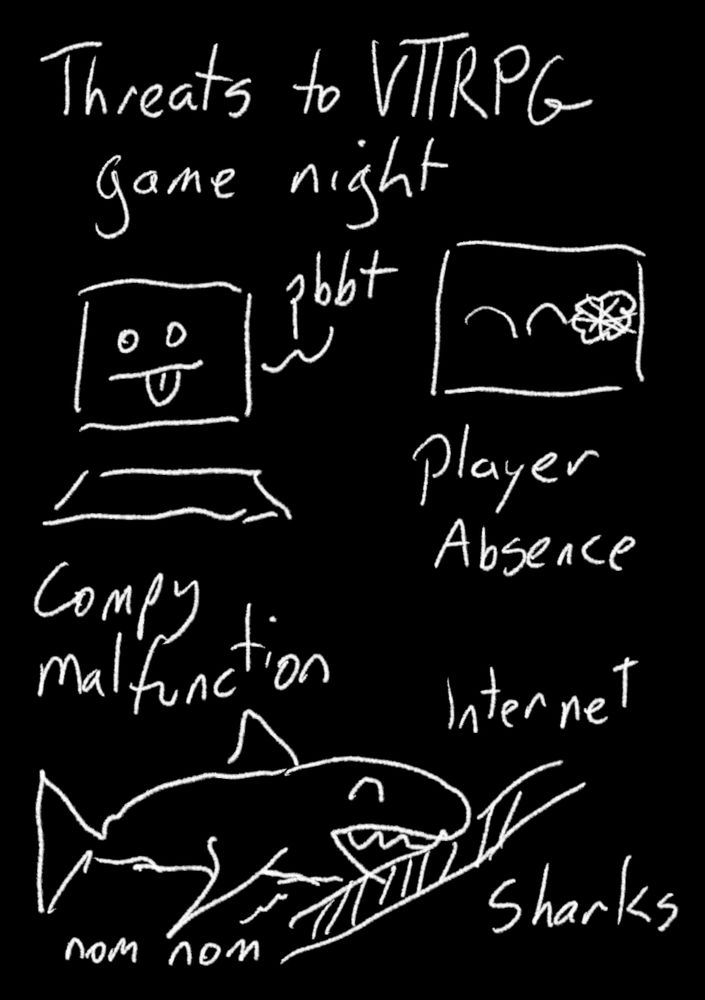 Threats to VTTRPG
game night
pbbt
Player
Absence
Compy
malfunction
Internet
Sharks
nom nom